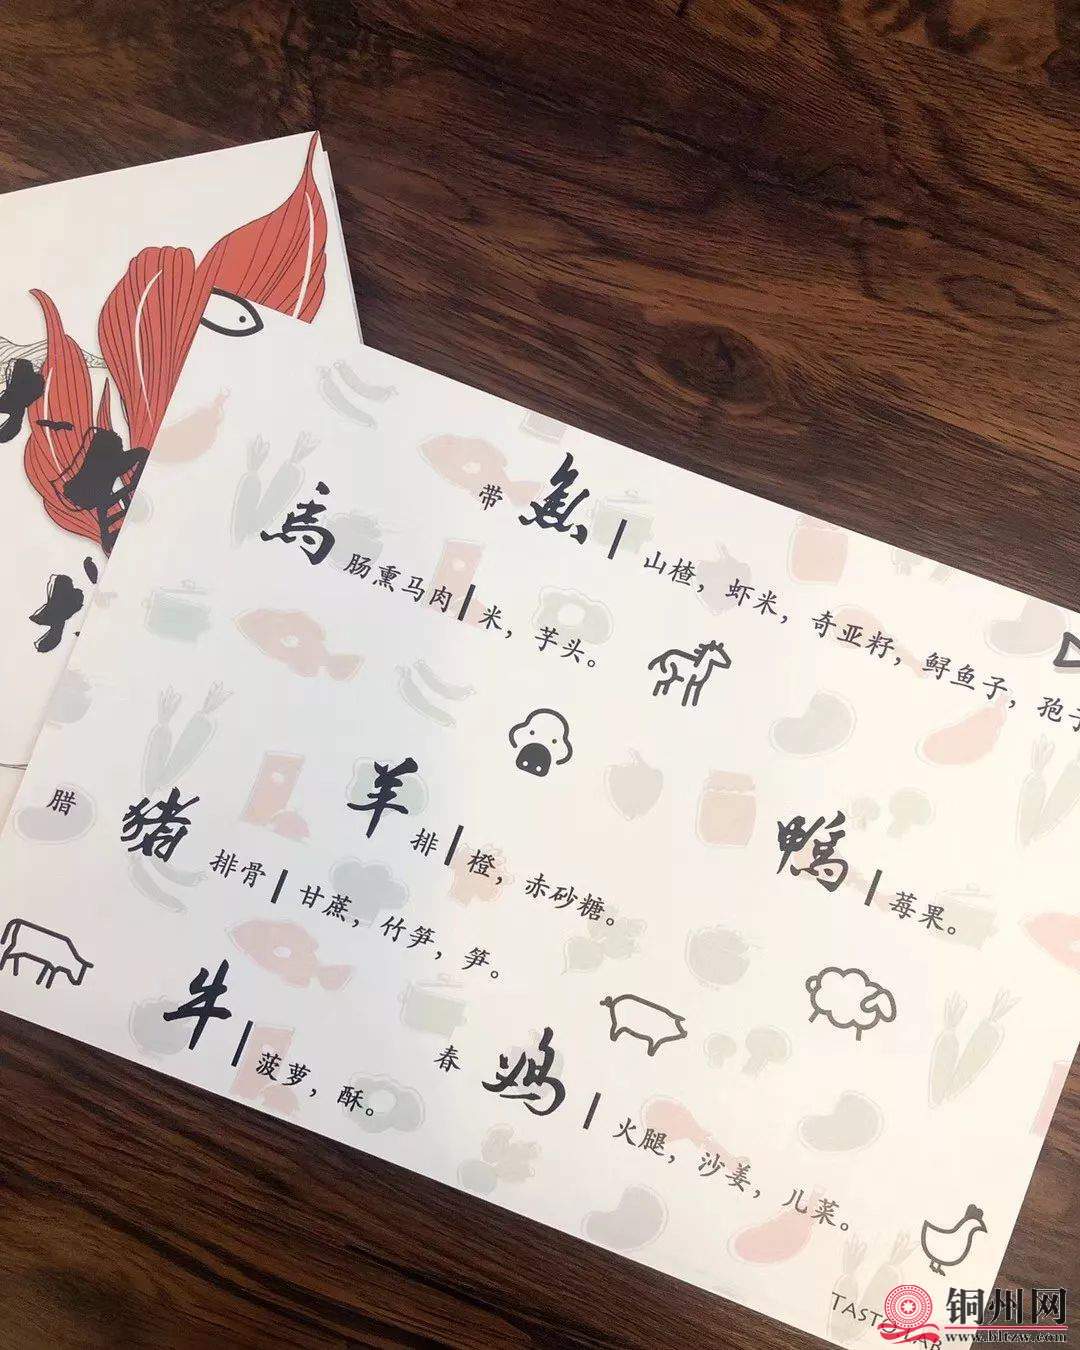 带魚|山楂，虾米，奇亚籽，鲟鱼子，孢子
馬肠熏马肉|米，芋头。
羊排|橙，赤砂糖。
鴨|莓果。
腊猪排骨|甘蔗，竹笋，笋。
牛|菠萝，酥。
春鸡|火腿，沙姜，儿菜。
TASTO LAB
铜州网
www.bltzw.com